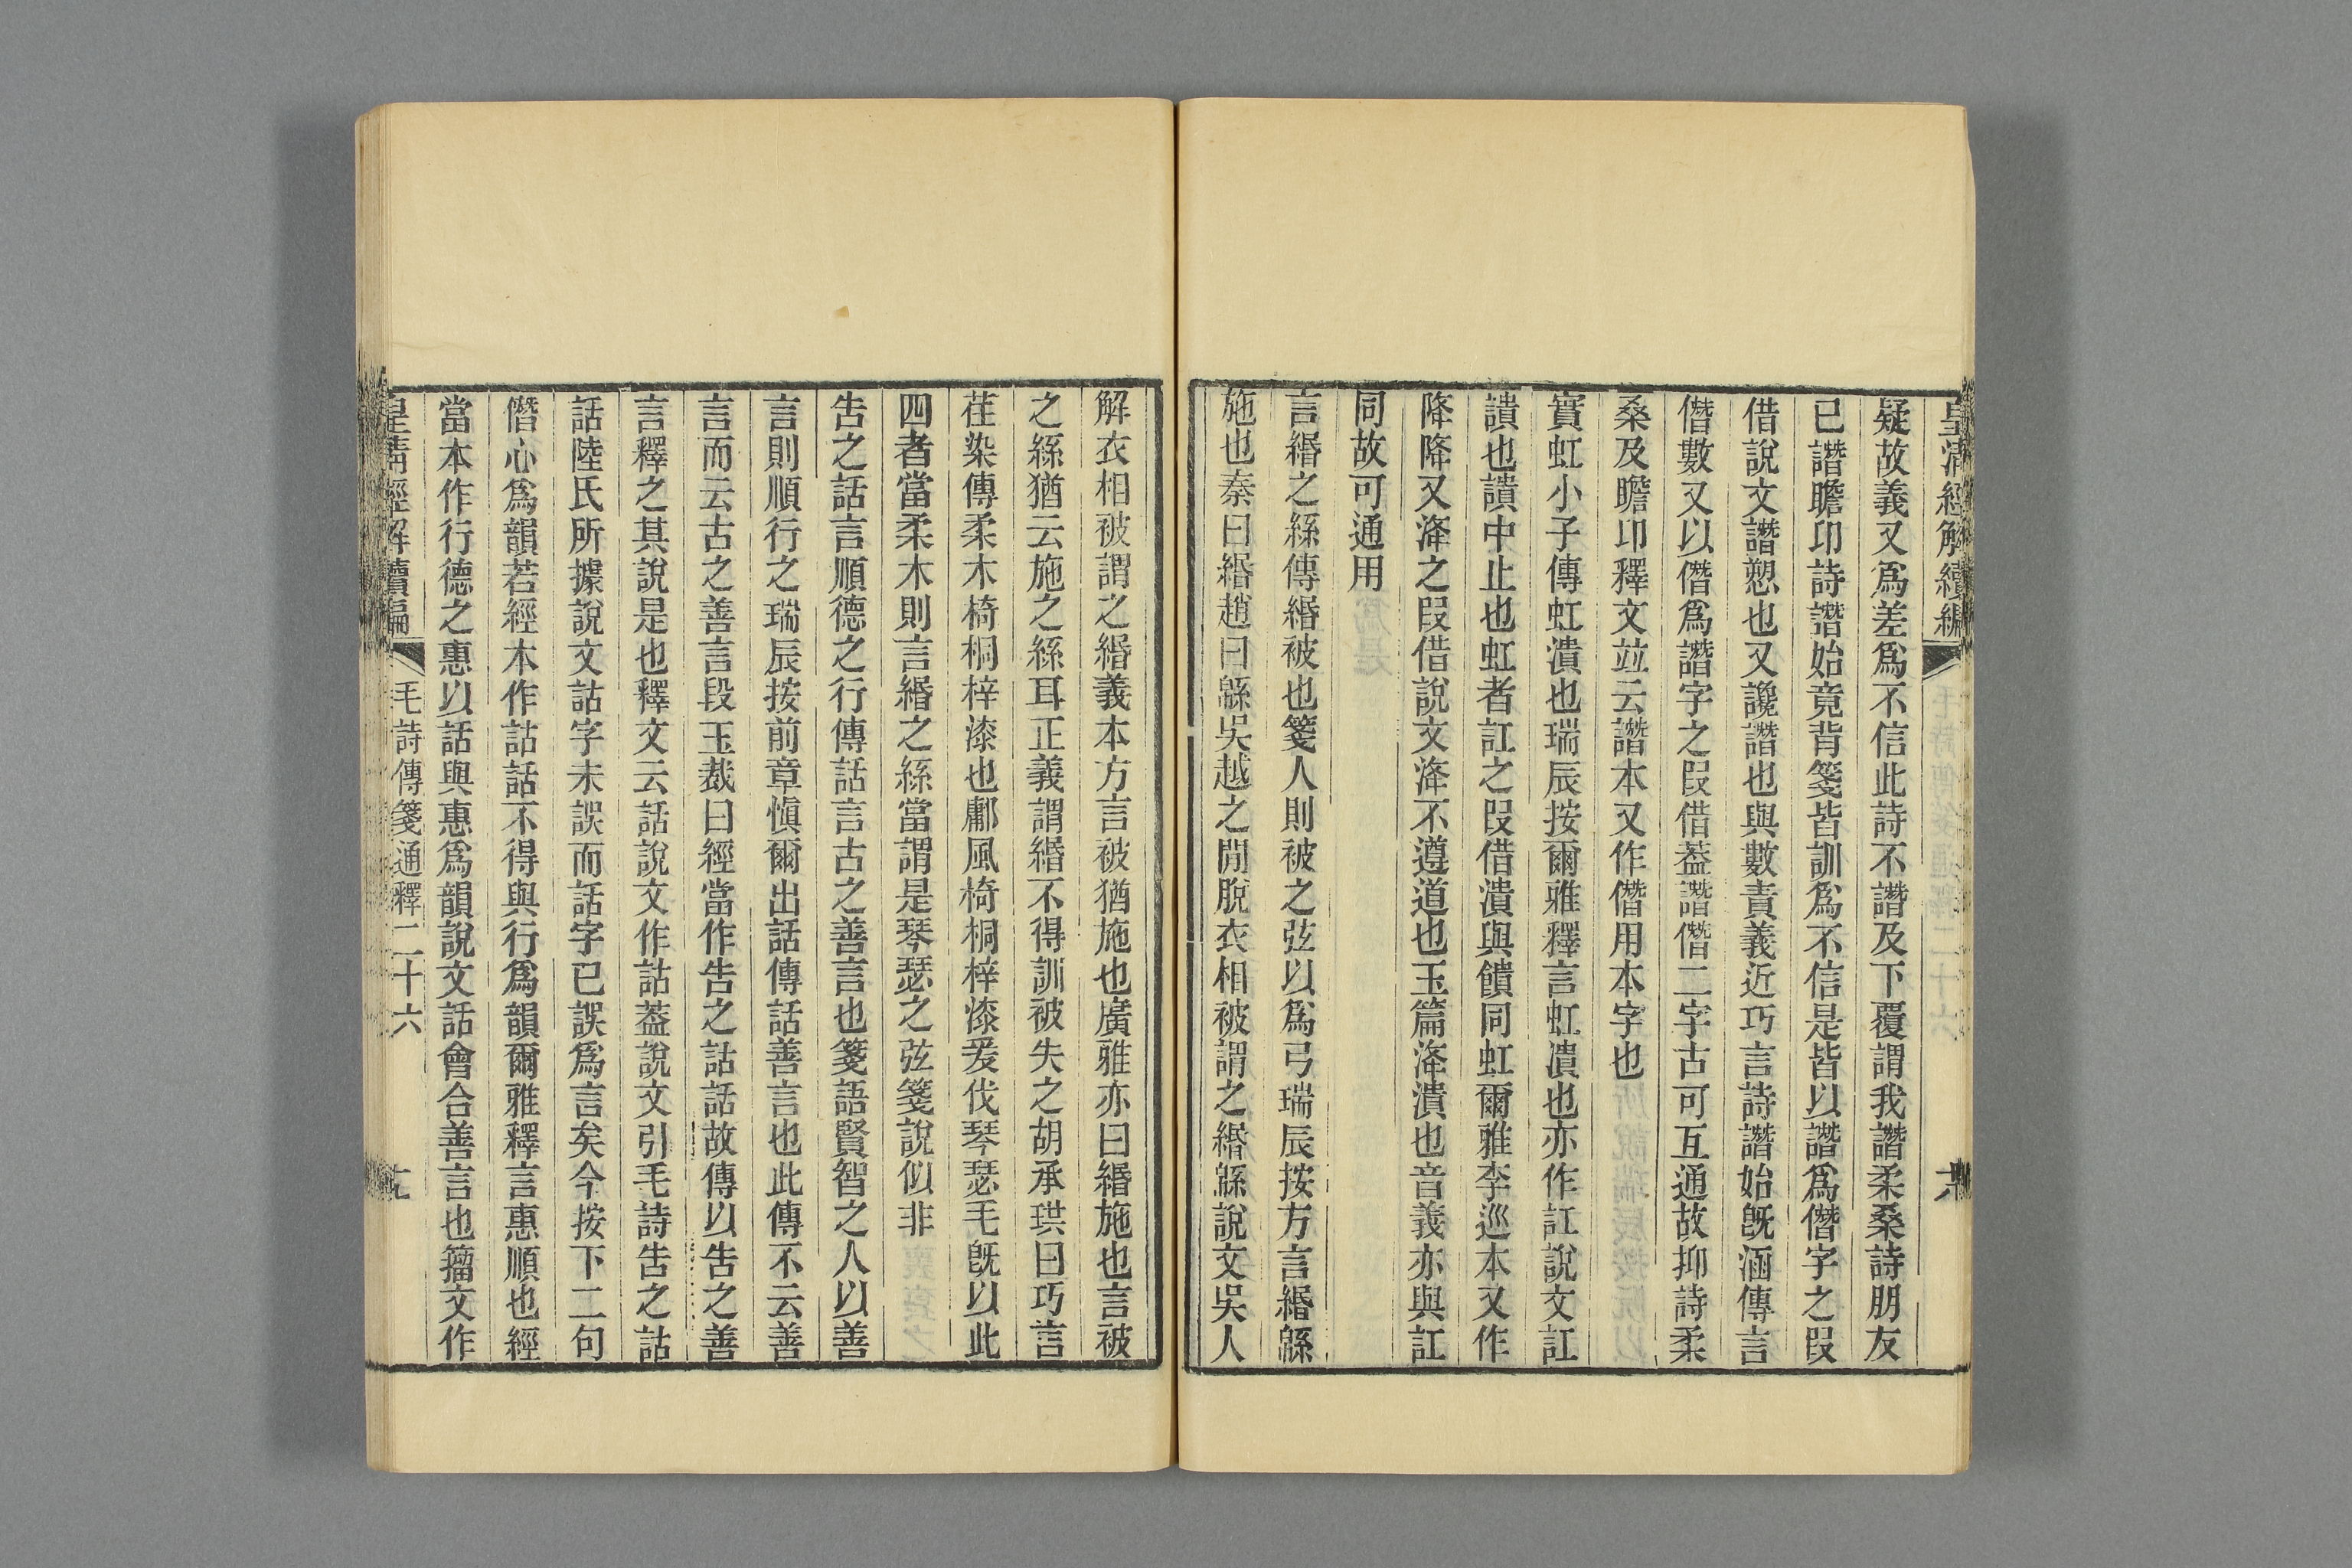 皇清經解續編
疑故義又爲差爲不信此詩不譖及下覆謂我譖柔桑詩朋友
已譖瞻卬詩譖始竟背箋皆訓爲不信是皆以譖爲僭字之叚
借說文譖愬也又讒譖也與數責義近巧言詩譖始旣涵傳言
僭數又以僭爲譖字之叚借葢譖僭二字古可互通故抑詩柔
桑及瞻卬釋文竝云譖本又作僭用本字也
實虹小子傳虹潰也瑞辰按爾雅釋言虹潰也亦作訌說文訌
讃也讃中止也虹者訌之叚借潰與饋同虹爾雅李巡本又作
降降又洚之叚借說文洚不遵道也玉篇洚潰也音義亦與訌
同故可通用
言緡之絲傳緡被也箋人則被之弦以爲弓瑞辰按方言緡緜
施也秦曰緡趙曰緜吳越之閒脫衣相被謂之緡緜說文吳人
解衣相被謂之緡義本方言被猶施也廣雅亦曰緡施也言被
之絲猶云施之絲耳正義謂緡不得訓被失之胡承珙曰巧言
荏染傳柔木椅桐梓漆也鄘風椅桐梓漆爰伐琴瑟毛旣以此
四者當柔木則言緡之絲當謂是琴瑟之弦箋說似非
告之話言順德之行傳話言古之善言也箋語賢智之人以善
言則順行之瑞辰按前章愼爾出話傳話善言也此傳不云善
言而云古之善言段玉裁曰經當作告之詁話故傳以告之善
言釋之其說是也釋文云話說文作詁葢說文引毛詩告之詁
話陸氏所據說文詁字未誤而話字已誤爲言矣今按下二句
僭心爲韻若經本作詁話不得與行爲韻爾雅釋言惠順也經
當本作行德之惠以話與惠爲韻說文話會合善言也籒文作
皇清經解續編
毛詩傳箋通釋二十六